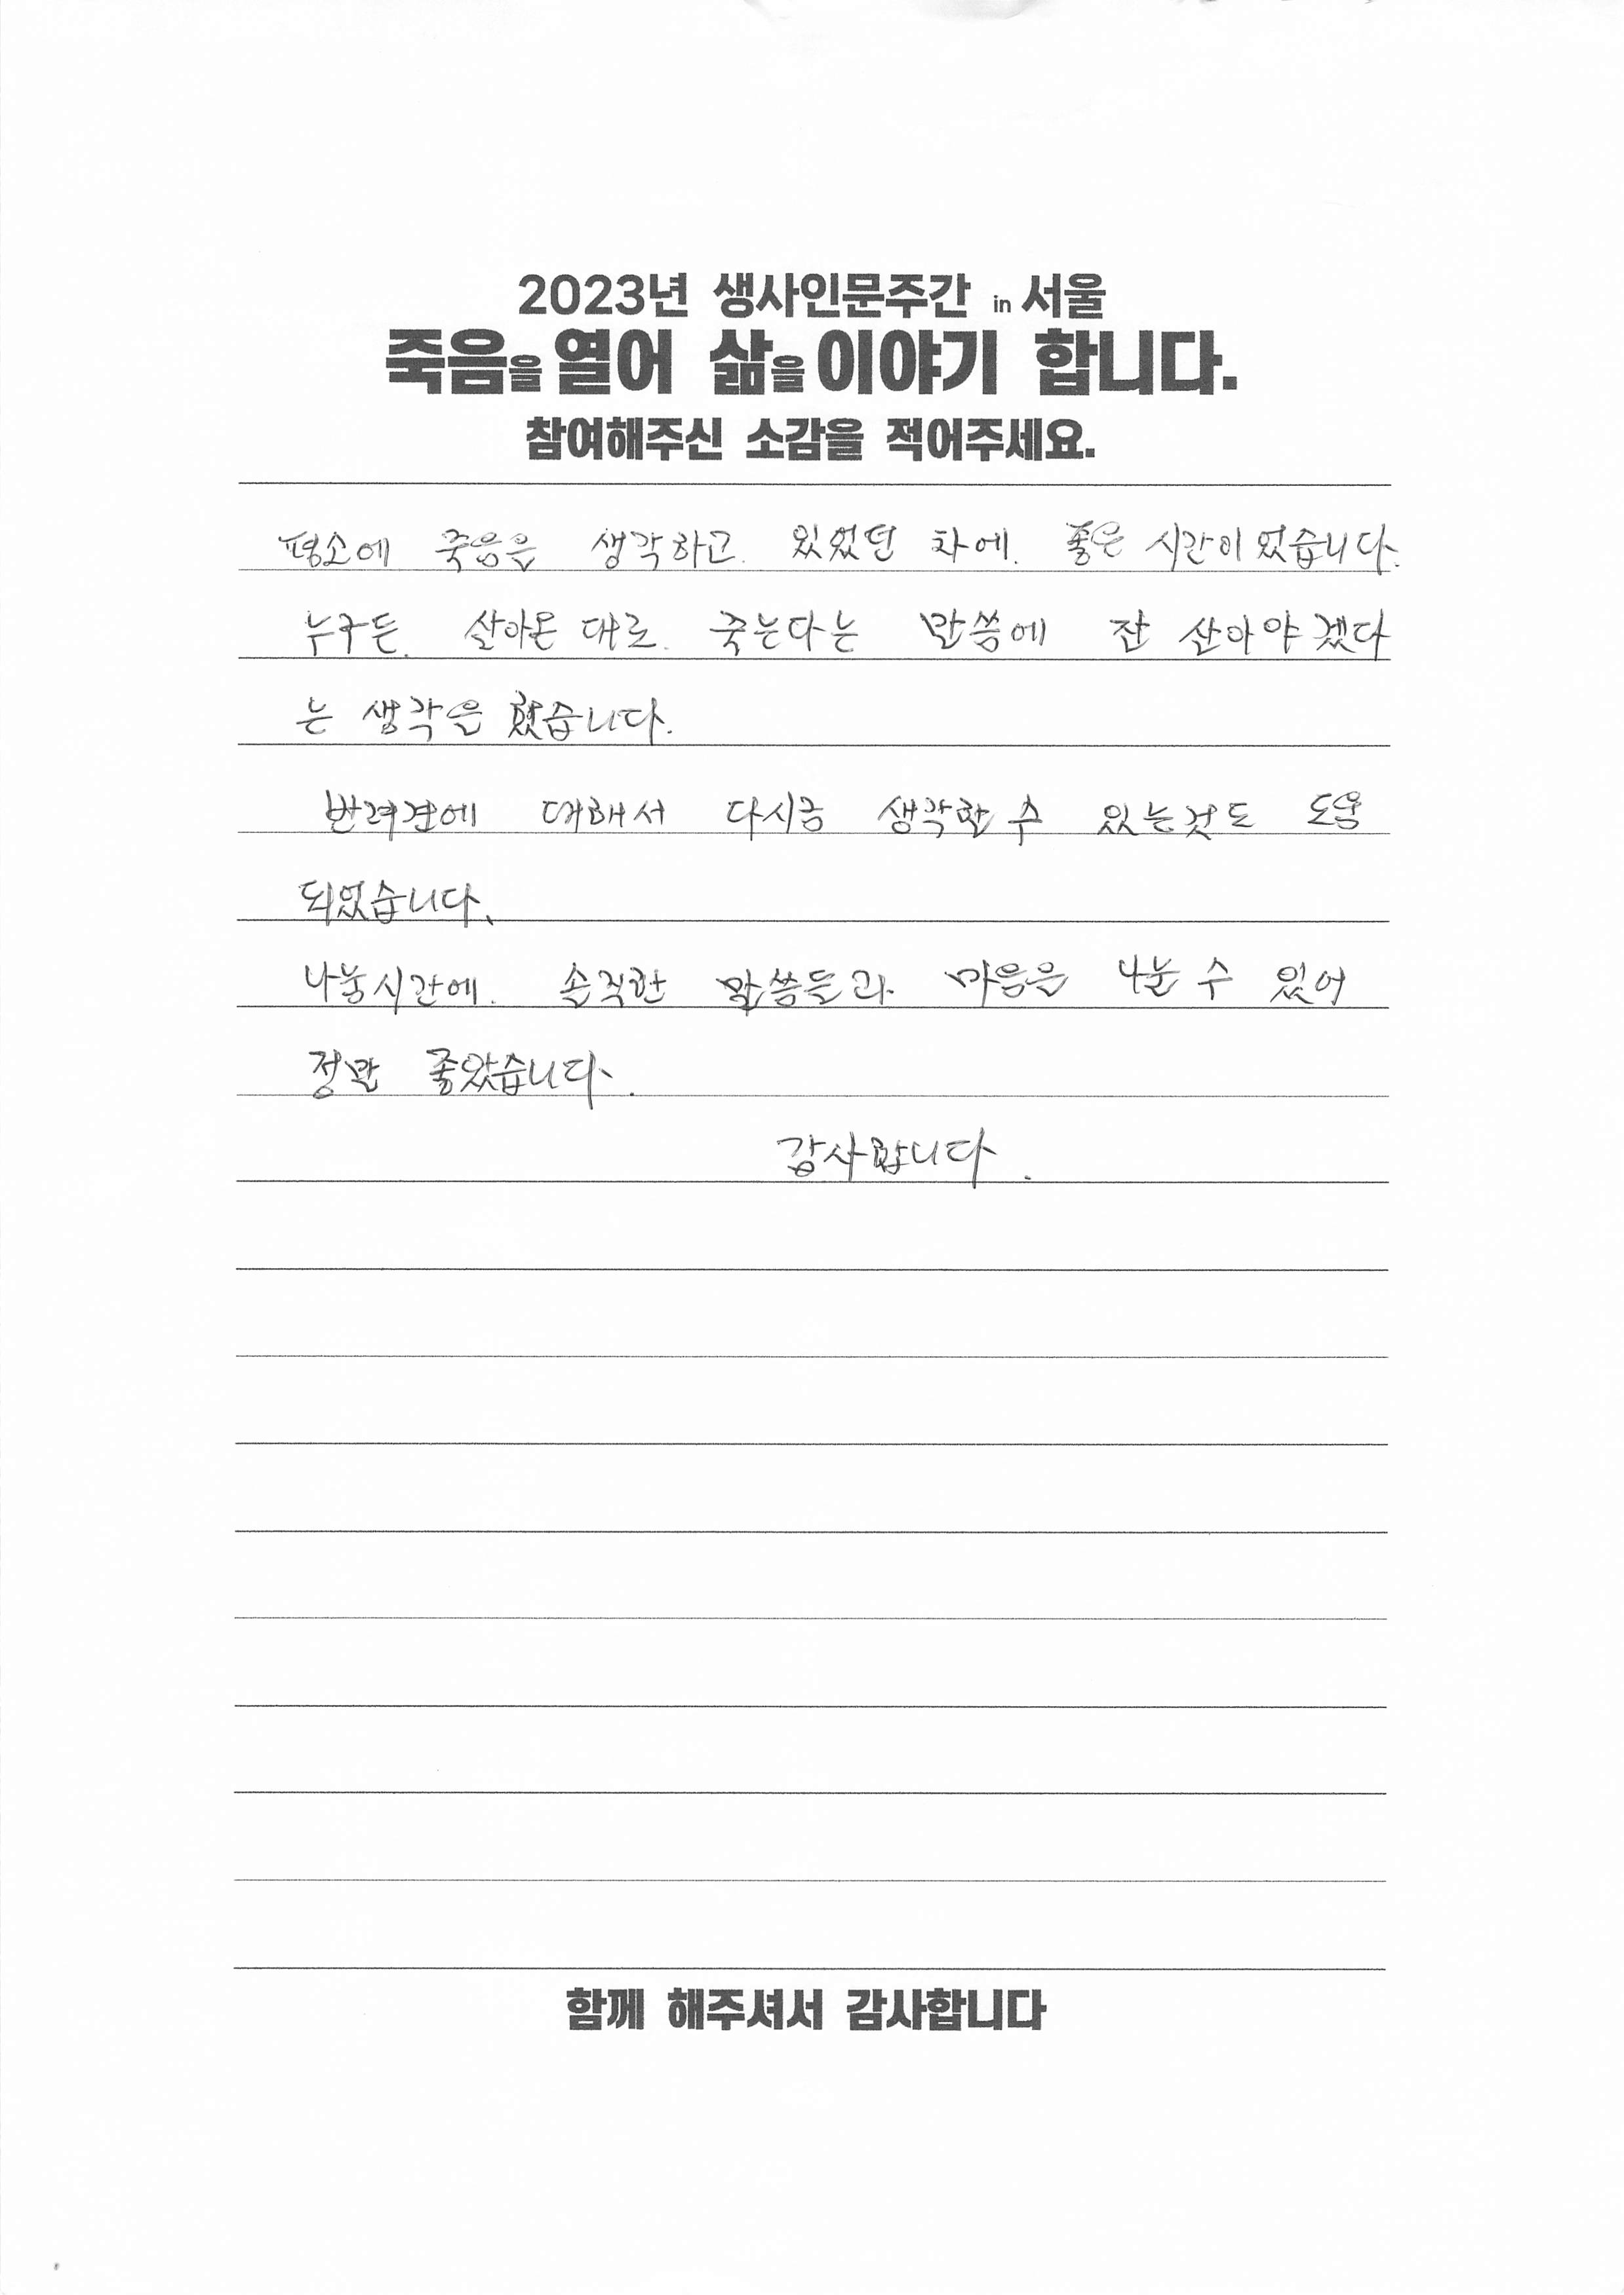 2023년 생사인문주간 in 서울
죽음을 열어 삶을 이야기 합니다.
참여해주신 소감을 적어주세요.
평소에 죽음을 생각하고 있었던 차에 좋은 시간이었습니다.
누구든 살아온 대로 죽는다는 말씀에 잘 살아야겠다
는 생각을 했습니다.
반려견에 대해서 다시금 생각할 수 있는것도 도움
되었습니다.
나눔시간에 솔직한 말씀들과 마음을 나눌 수 있어
정말 좋았습니다.
감사합니다.
함께 해주셔서 감사합니다